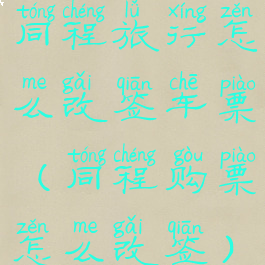 tóng chéng lǚ xíng zěn
同程旅行怎
me gǎi qiān chē piào
么改签车票
tóng chéng gòu piào
（同程购票
zěn me gǎi qiān
怎么改签）